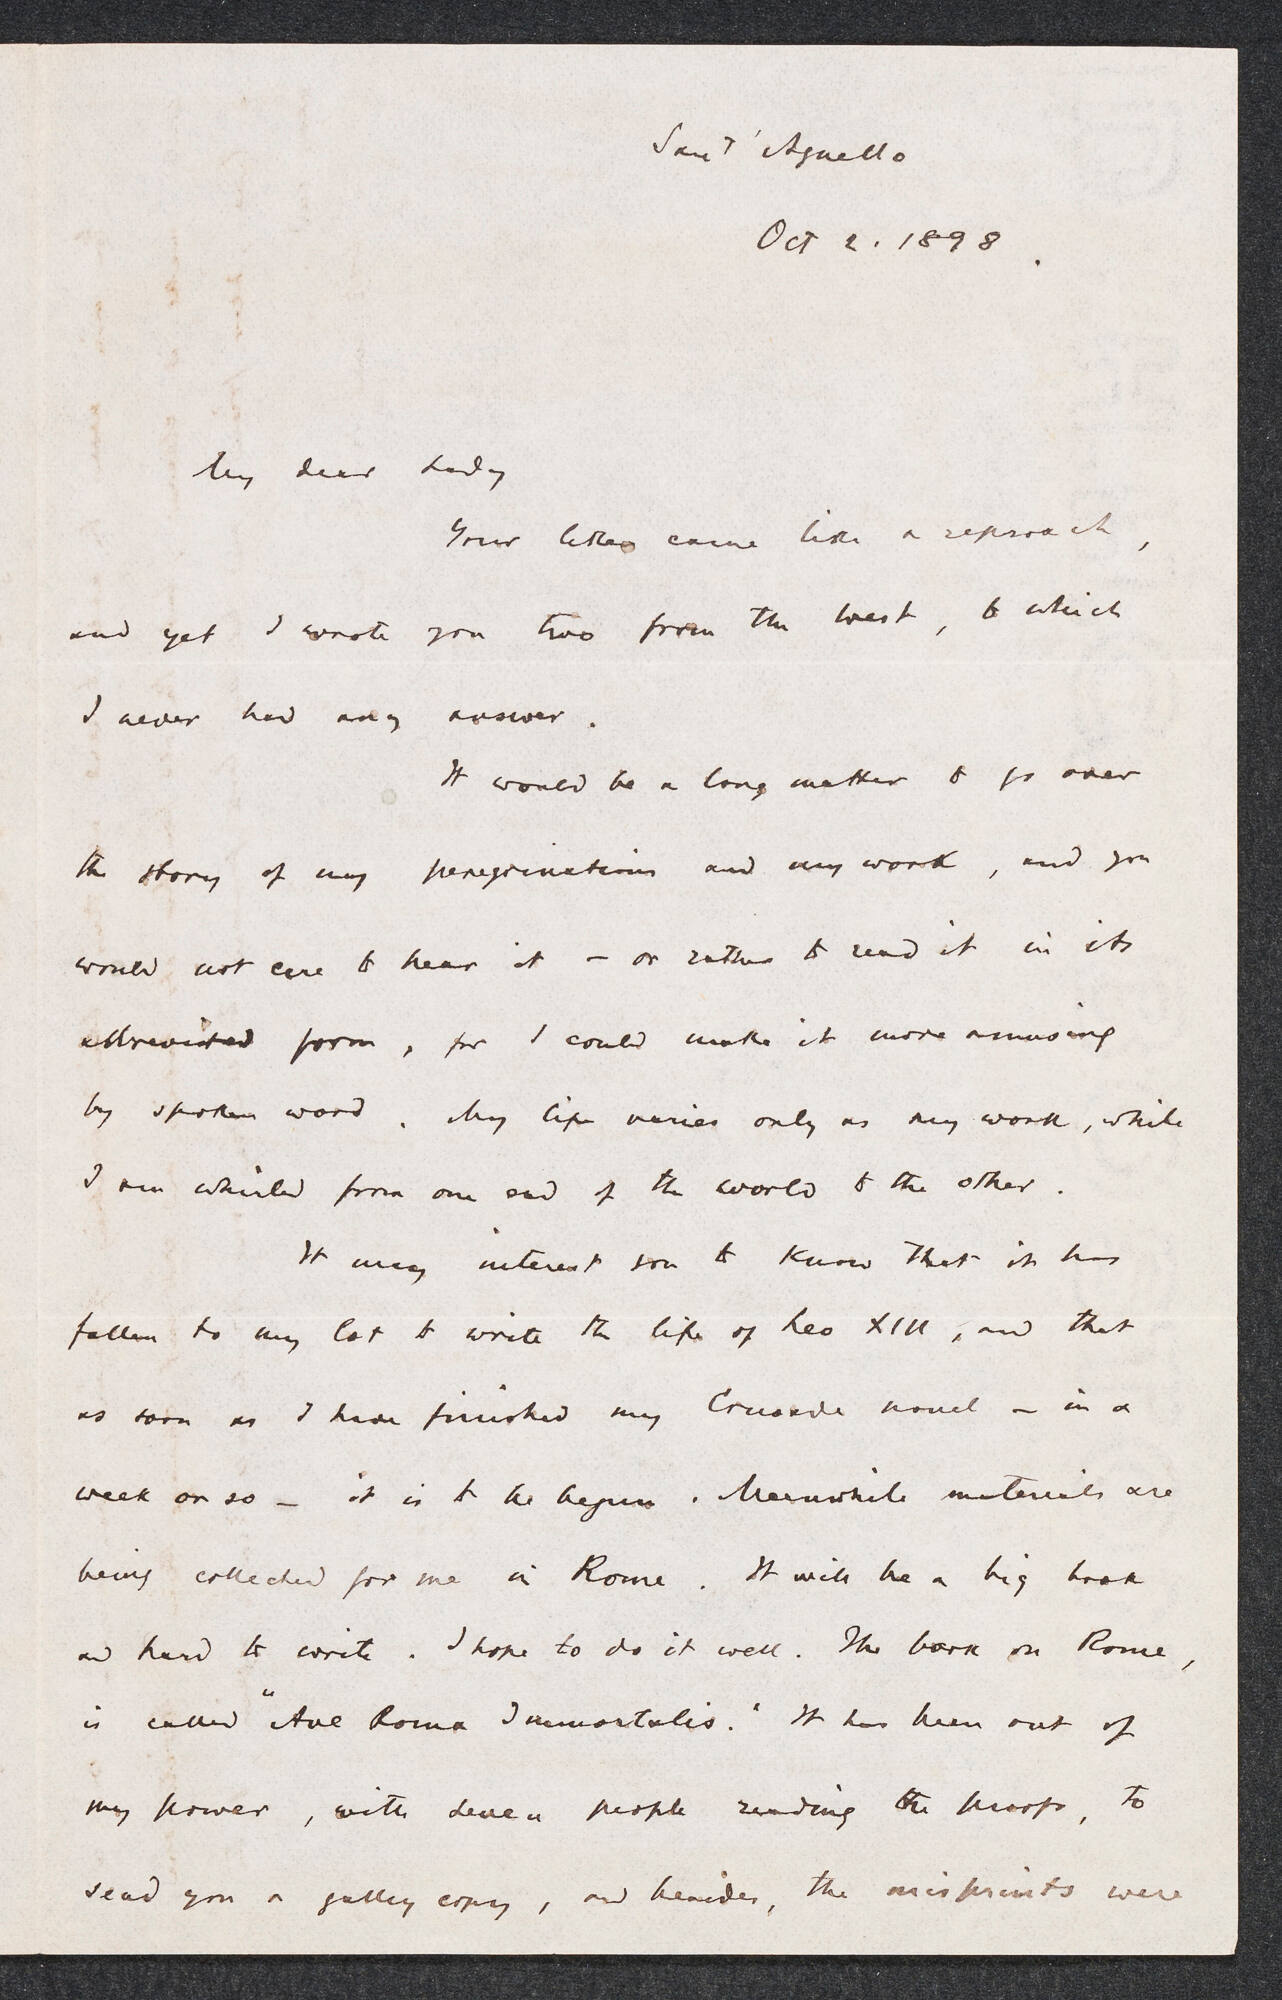 Sant' Agnello
Oct 2. 1898.
My dear Lady
Your letter came like a reproach,
and yet I wrote you two from the West, to which
I never had any answer.
It would be a long matter to go over
the story of my peregrinations and my work, and you
would not care to hear it – or rather to read it in its
abbreviated form, for I could make it more amusing
by spoken word. My life varies only as my work, while
I am whirled from one end of the world to the other.
It may interest you to know that it has
fallen to my lot to write the life of Leo XIII, and that
as soon as I have finished my Crusade novel – in a
week or so – it is to be begun. Meanwhile materials are
being collected for me in Rome. It will be a big book
and hard to write. I hope to do it well. The book on Rome,
is called "Ave Roma Immortalis." It has been out of
my power, with seven people reading the proofs, to
send you a galley copy, and besides, the misprints were